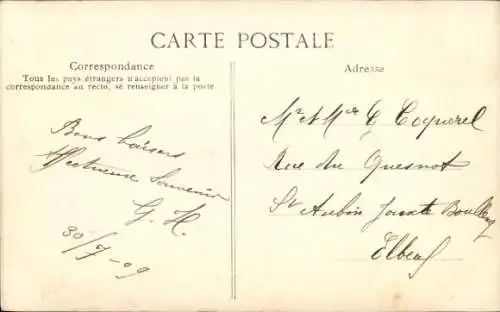 CARTE POSTALE
Correspondance
Tous les pays étrangers n'acceptent pas la
correspondance au recto, se renseigner à la poste
Bons baisers
Affectueux Souvenir
G. H.
30/7-09
Adresse
Mr & Mme G Coquerel
Rue du Quesnot
St Aubin Jouxte Boulleng
Elbeuf